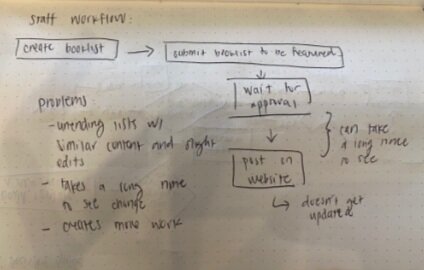 Staff workflow:
create booklist
submit booklist to be featured
wait for
approval
can take
a long time
to see
post on
website
doesn't get
updated
problems
- unending lists w/
similar content and slight
edits
- takes a long time
to see change
- creates more work